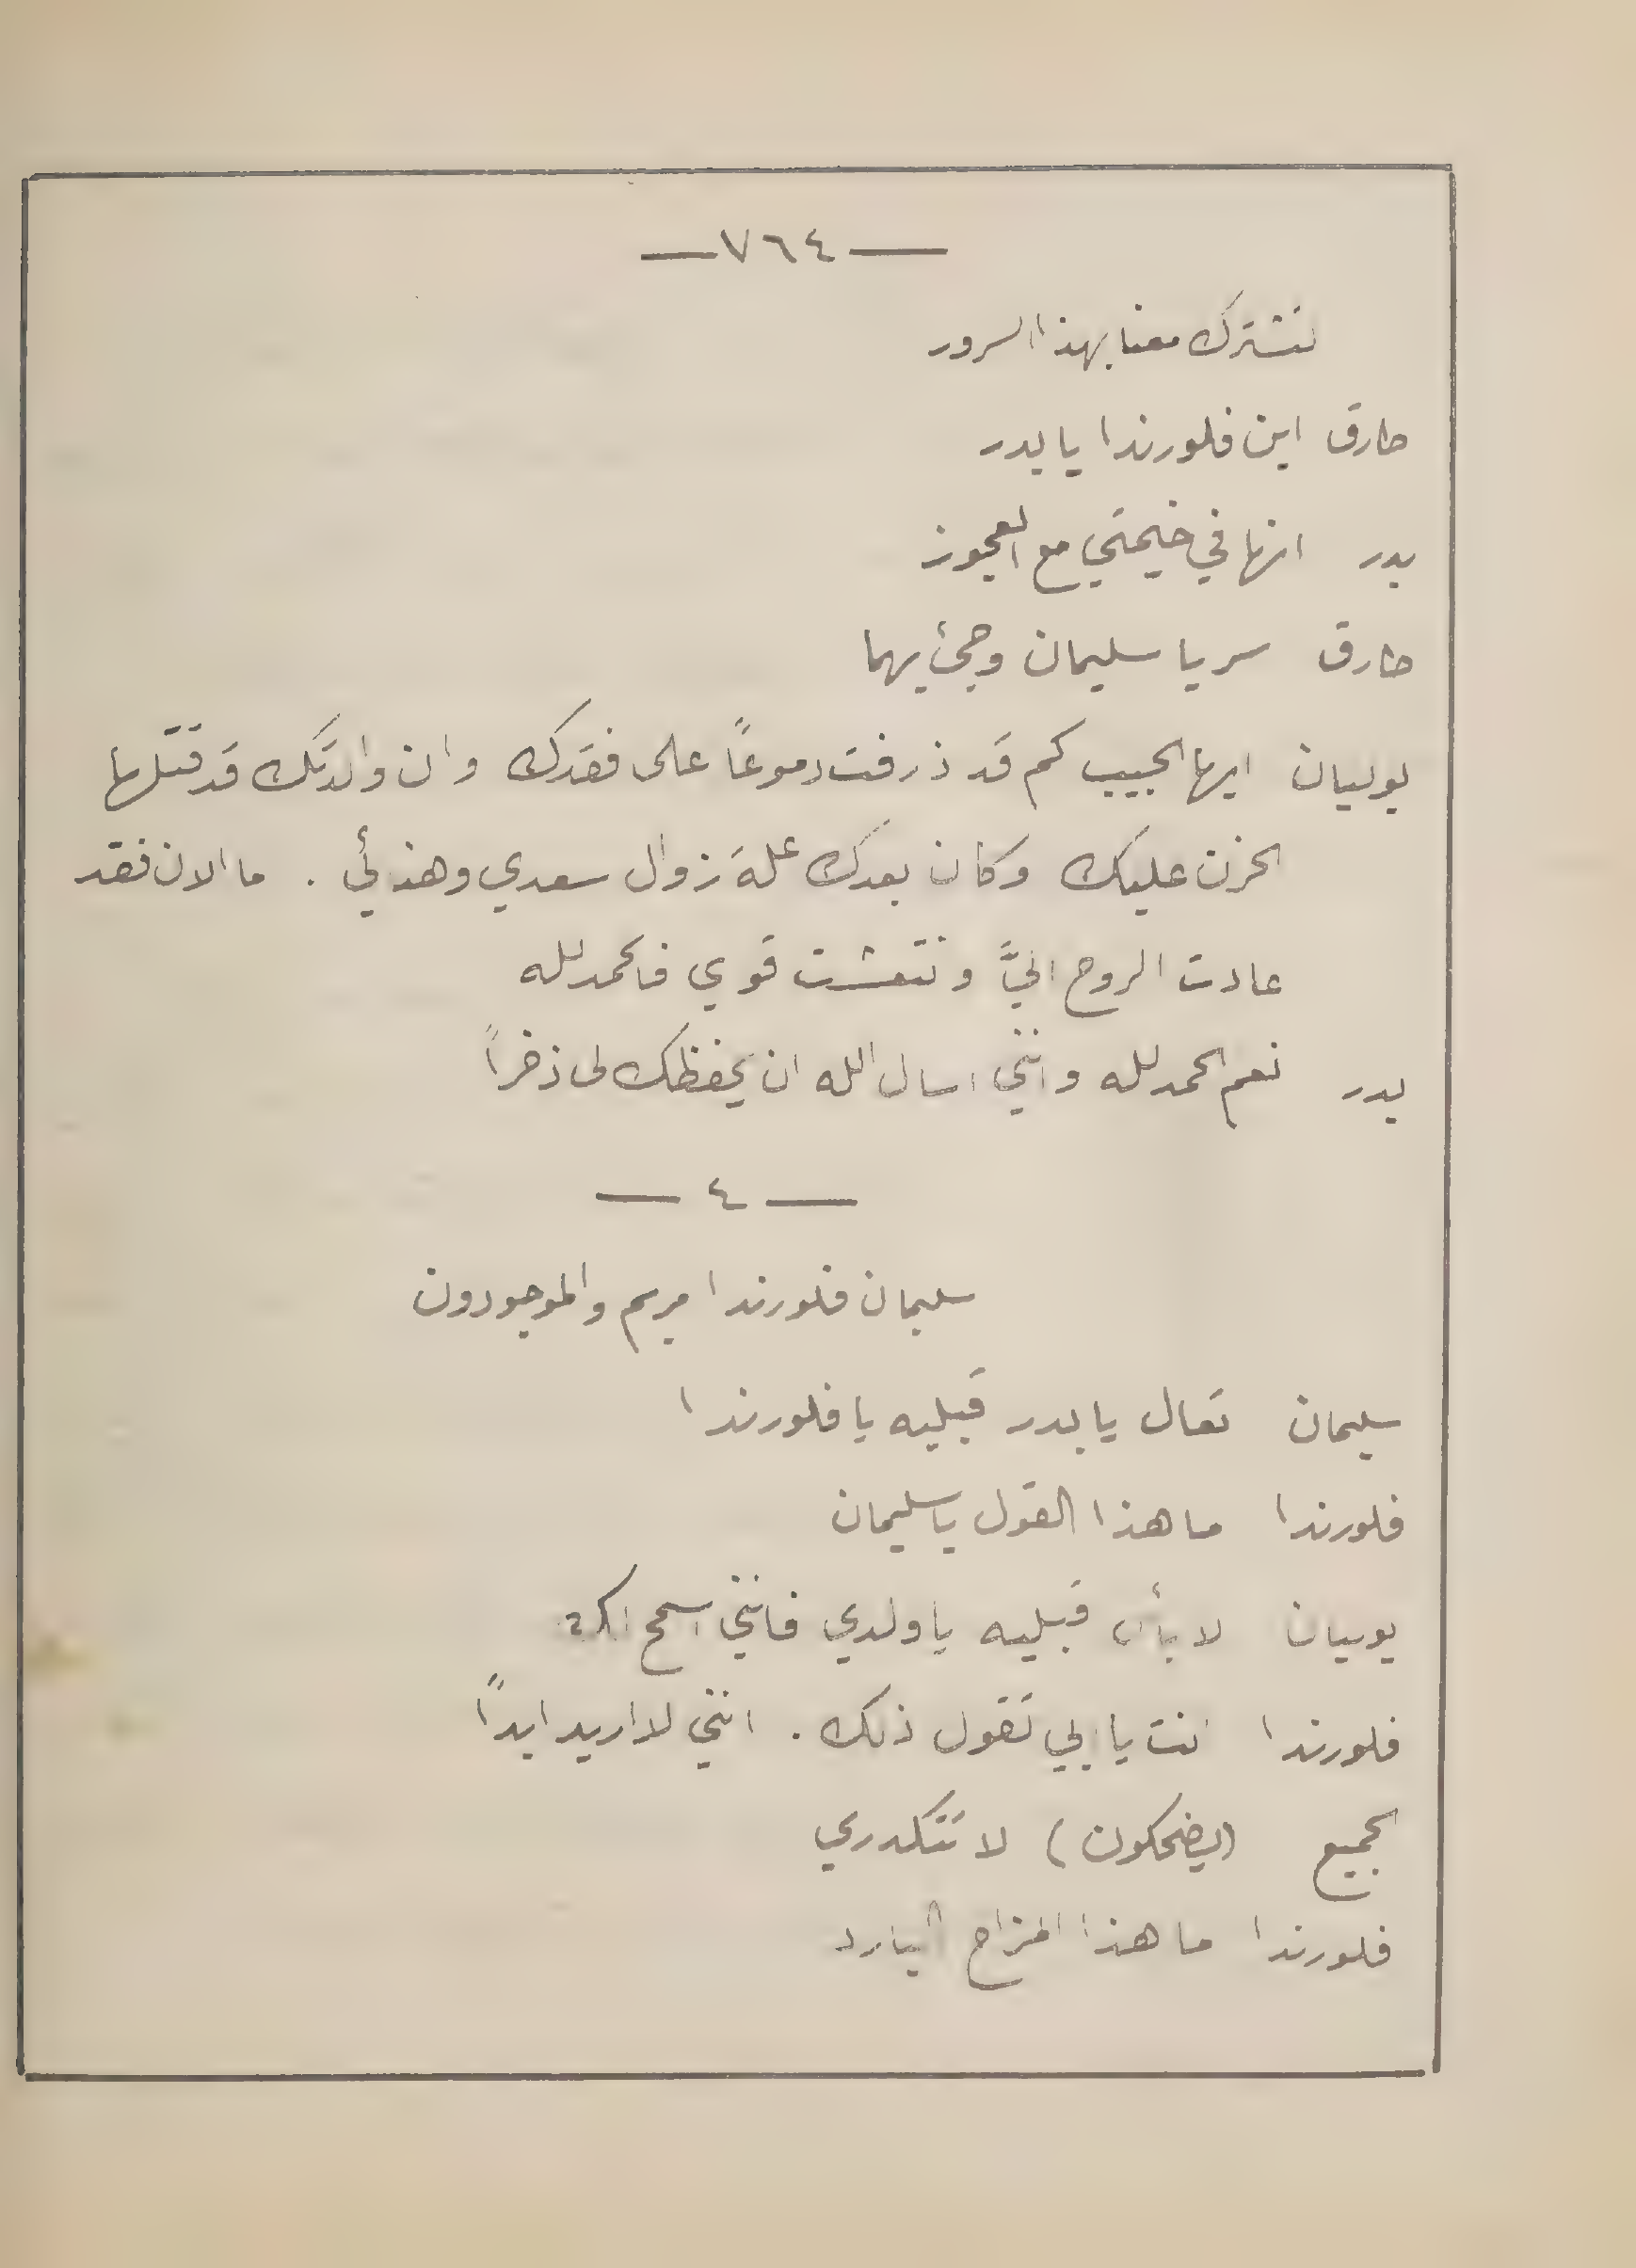 — ٧٦٤ —
لتشترك معنا بهذا السرور
طارق اين فلورندا يا بدر
بدر انها في خيمتي مع العجوز
طارق سر يا سليمان وجئ بهما
يوليان ايها الحبيب كم قد ذرفت دموعاً على فقدك وان والدتك قد قتلها
الحزن عليك وكان بعدك علة زوال سعدي وهنائي . ما الان فقد
عادت الروح اليَّ ونتعشت قوي فالحمد لله
بدر نعم الحمد لله وانني اسال الله ان يحفظك لى ذخراً
— ٤ —
سليمان فلورندا مريم والموجودون
سليمان تعال يا بدر قبليه يا فلورندا
فلورندا ما هذا القول يا سليمان
يوليان لا بأس قبليه يا ولدي فانني اسمح لك
فلورندا انت يا ابي تقول ذلك . انني لا اريد ابداً
الجميع (يضحكون) لا تتكدري
فلورندا ما هذا المزاح البارد